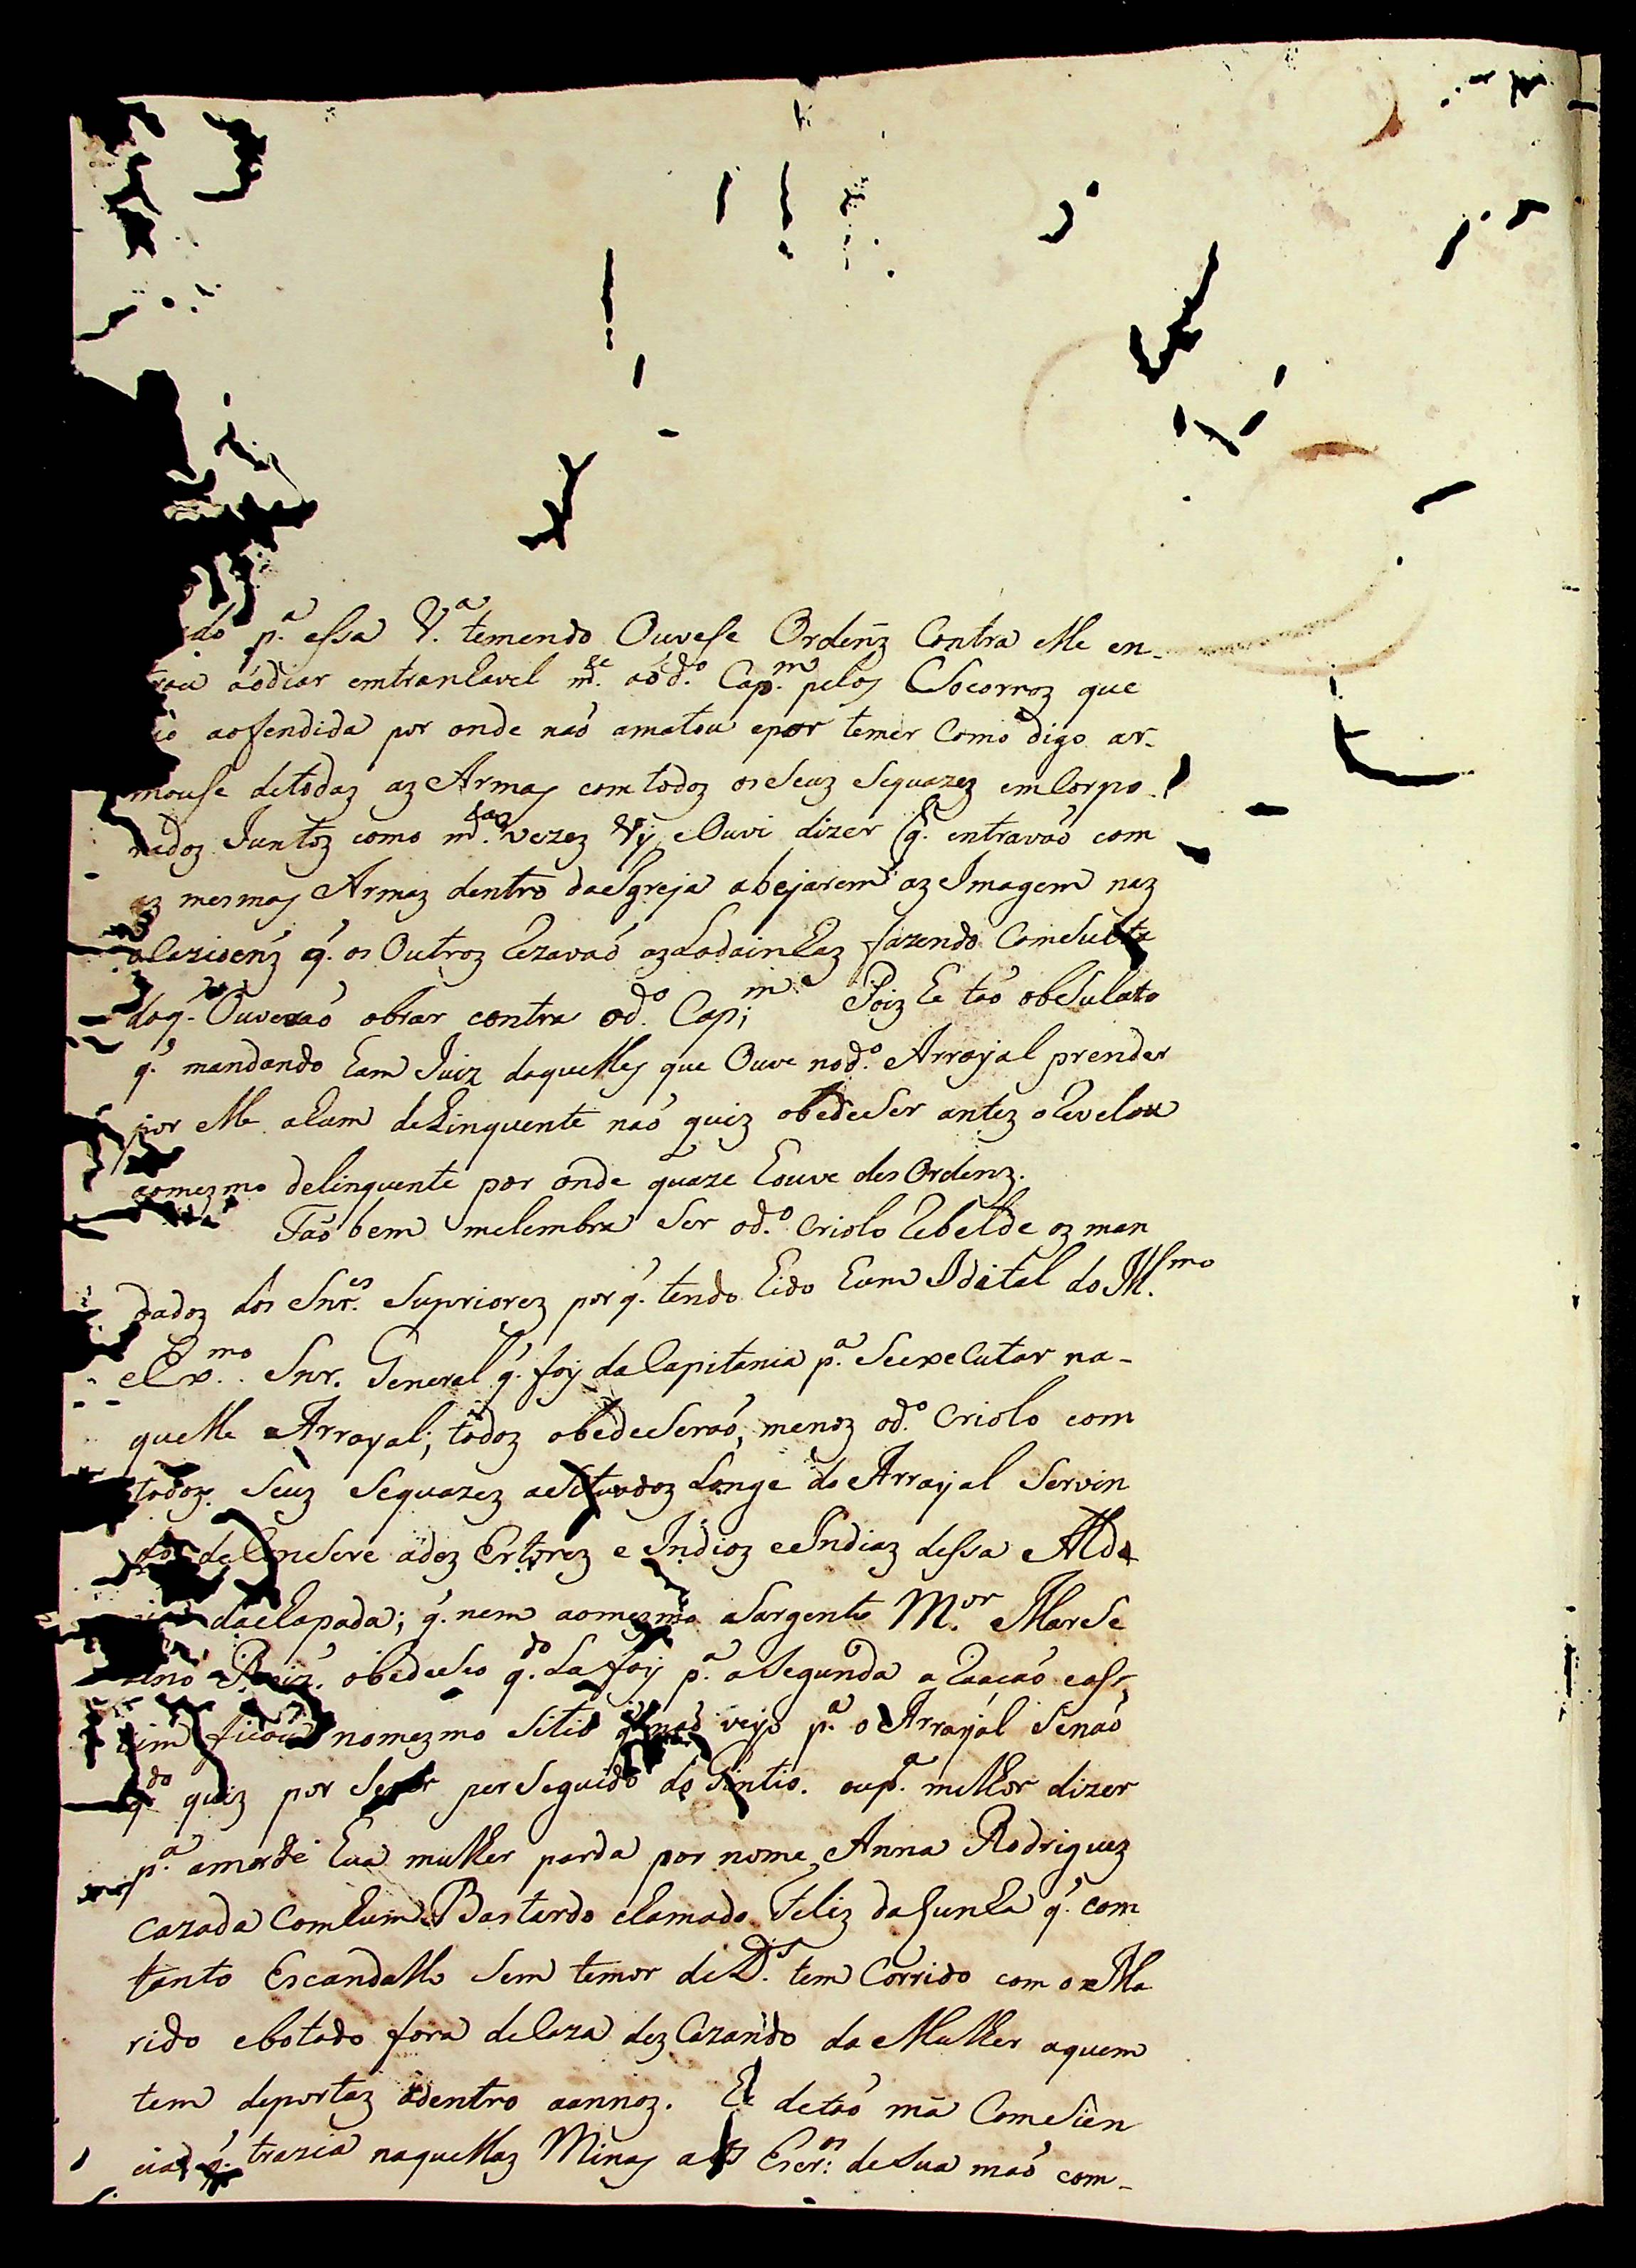 do p.ª essa V.ª temendo Ouvese Ordeñz Contra elle en-
aódiar emtranhavel m.de aó d.º Cap.m pelos Socorroz que
aofendida por onde naó amatou epor temer Como digo ar-
mouse detodaz az Armas com todoz os Seuz Sequazez emCorpo-
radoz Juntoz como m.tas vezez Vij eOuvi dizer q. entravaó com
az mesmas Armaz dentro daIgreja abejarem az Imagem naz
q. os Outroz Rezavaó azLadainhaz fazendo ComSulta
doq. Ouveraó obrar contra od.º Cap.m Poiz he taó obSuluto
q. mandando hum Juiz daquelles que Ouve nod.º Arrayal prender
por elle ahum delinquente naó quiz obedeSer antez oRevelou
aomezmo delinquente por onde quaze houve desOrdenz.
Taóbem melembra Ser od.º Criolo Rebelde oz man
dadoz dos Snr.es Supriorez por q. tendo hido hum Idital do Ill.mo
eEx.mo Snr. General q. foy daCapitania p.ª SeexeCutar na-
quelle Arrayal; todoz obedeSeraó, menoz od.º Criolo com
todoz Seuz Sequazez aSituadoz Longe do Arrayal Servin
do de e Indioz eIndiaz dessa Alde
daChapada; q. nem aomezmo aSargento M.or MarSe
lino obedeSeo q.do La foy p.ª aSegunda eaSr,
sim ficou nomezmo Sitio q. naó veyo p.ª o Arrayal Senaó
q.do quiz por Ser perSeguido do Gintio. oup.ª milhor dizer
p.ª amorde hua mulher parda por nome Anna Rodriguez
cazada Comhum Bastardo chamado Feliz daCunha q. com
tanto Escandallo Sem temor deD.s tem Corrido com o Ma
rido ebotado fora deCaza dezCazando da Mulher aquem
tem deportaz adentro aannoz. He detaó má ComSien
cia q. trazia naquellaz Minas Escr.os deSua maó com-